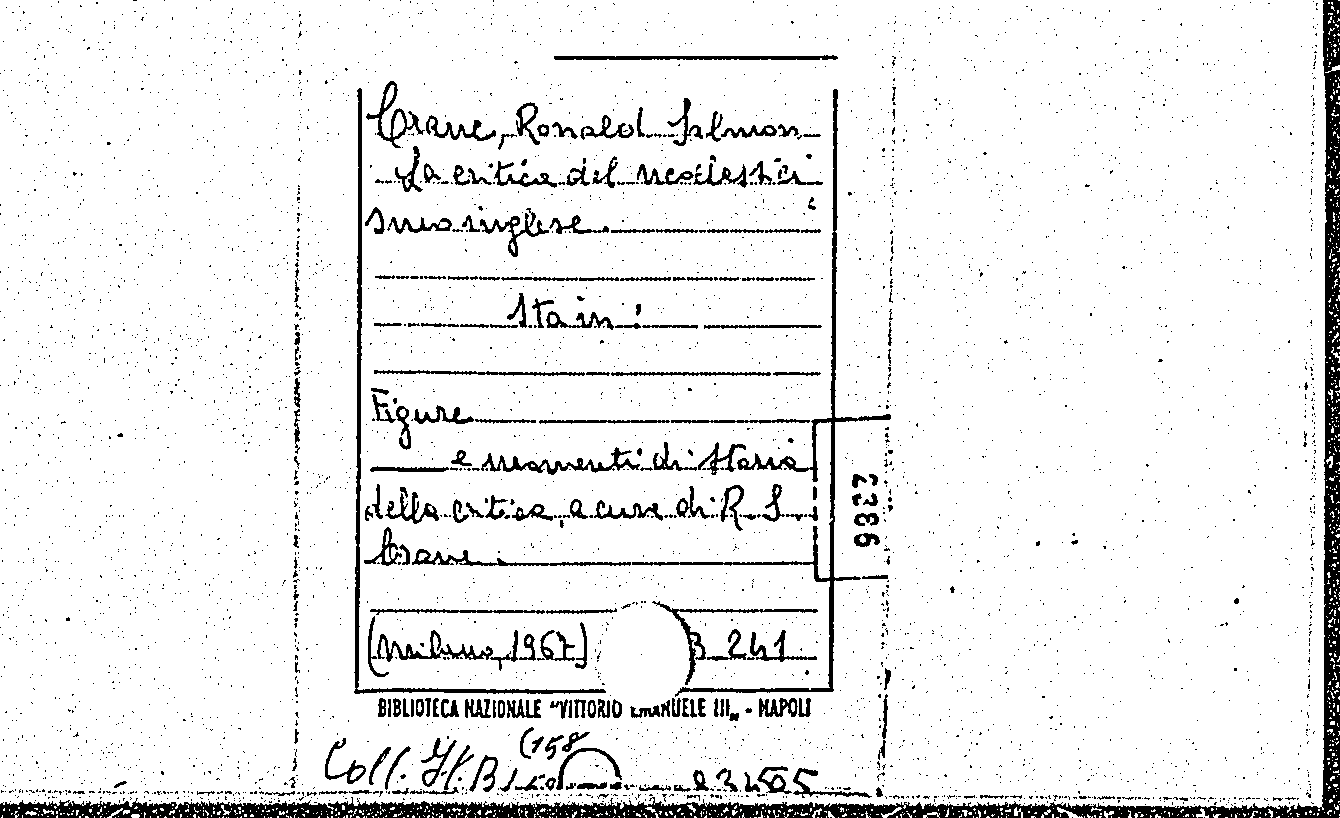 Crane, Ronald Salmon
La critica del neoclassici
smo inglese.
Sta in:
Figure
e momenti di storia
della critica, a cura di R. S.
Crane.
2386
(Milano, 1967) B 241
BIBLIOTECA NAZIONALE "VITTORIO EMANUELE III„ - NAPOLI
Coll. It. B (158